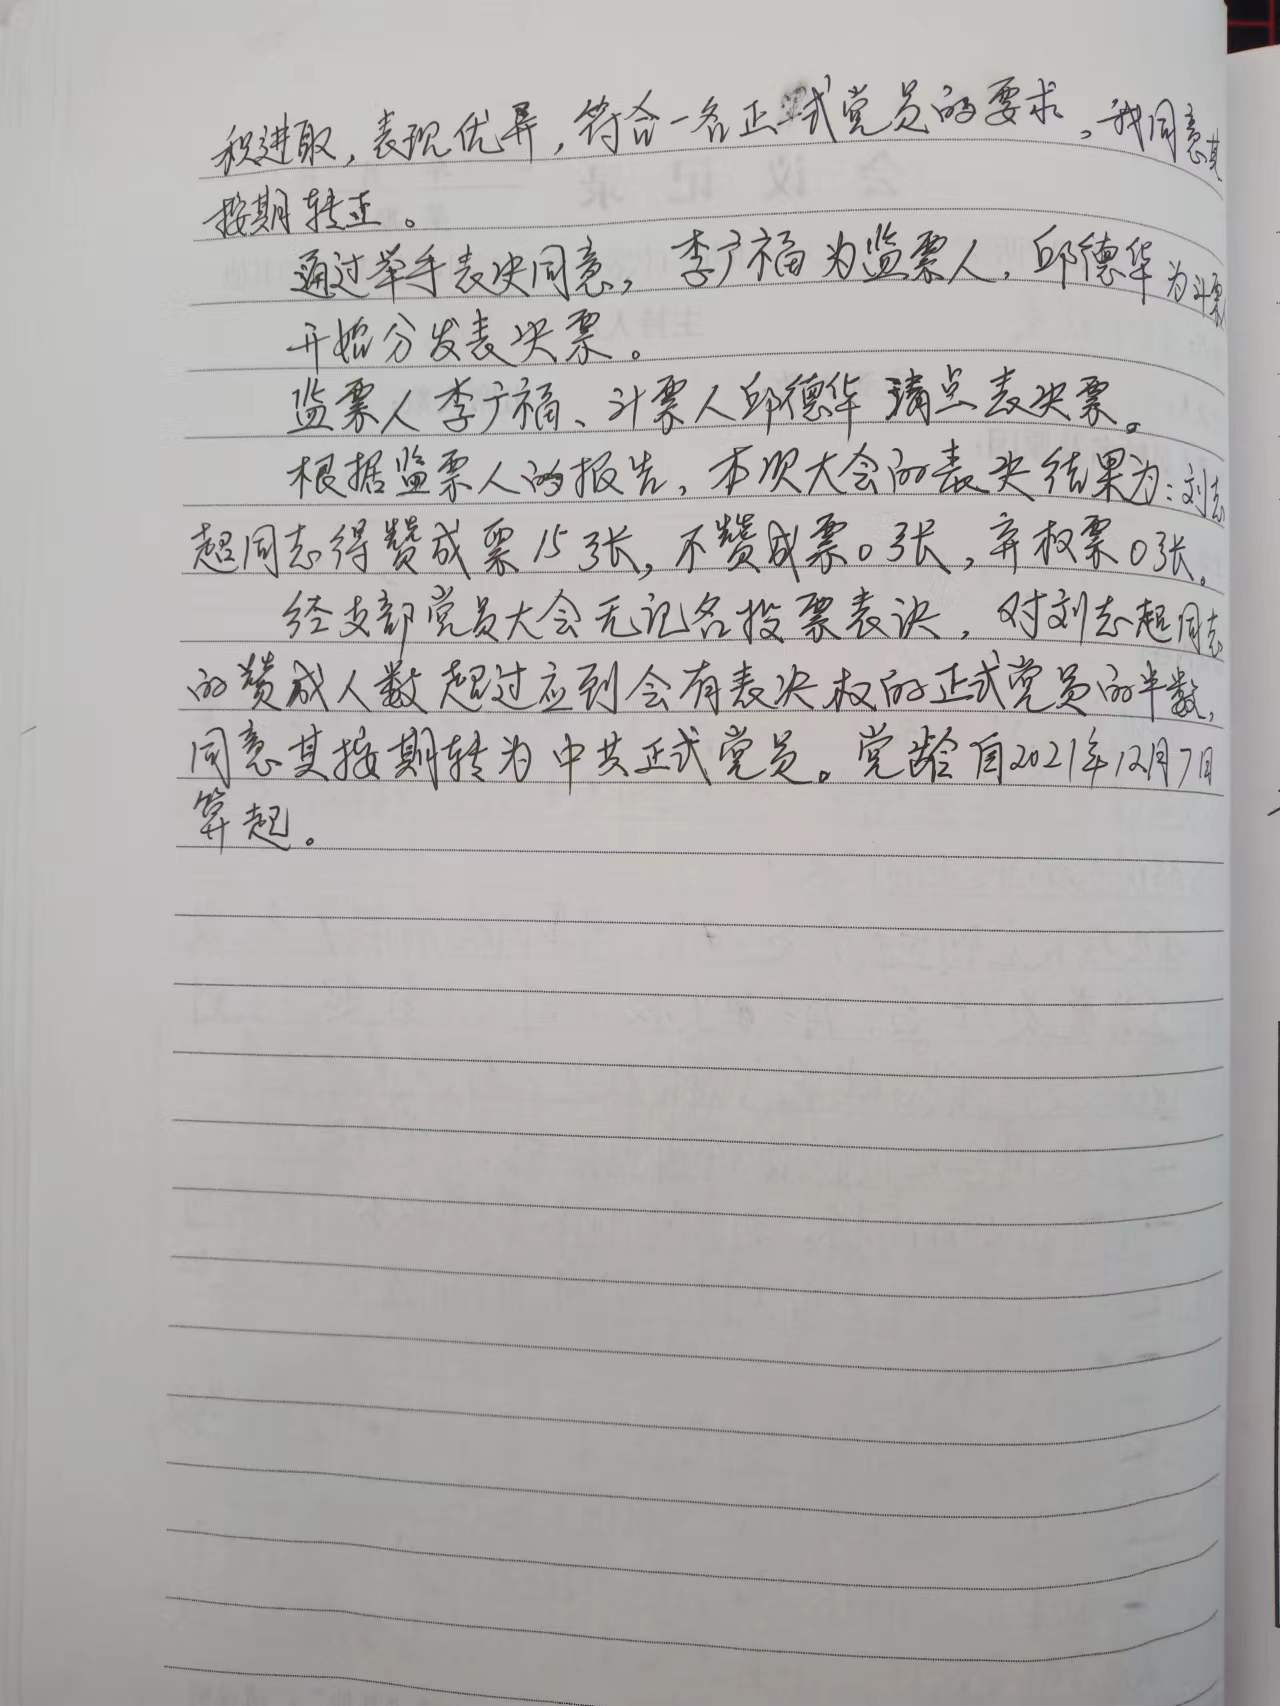 积进取，表现优异，符合一名正式党员的要求，我同意其
按期转正。
通过举手表决同意，李广福为监票人，邱德华为计票
开始分发表决票。
监票人李广福、计票人邱德华清点表决票。
根据监票人的报告，本次大会的表决结果为：刘志
超同志得赞成票15张，不赞成票0张，弃权票0张。
经支部党员大会无记名投票表决，对刘志超同志
的赞成人数超过应到会有表决权的正式党员的半数，
同意其按期转为中共正式党员。党龄自2021年12月7日
算起。
会议记录